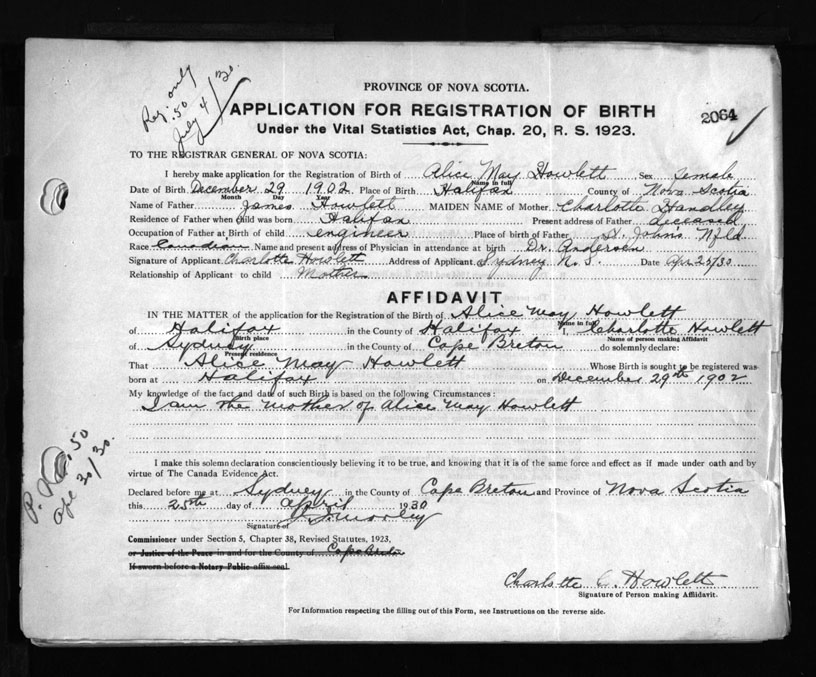 Reg. only
.50
July 4/30.
PROVINCE OF NOVA SCOTIA.
APPLICATION FOR REGISTRATION OF BIRTH
2064
Under the Vital Statistics Act, Chap. 20, R. S. 1923.
TO THE REGISTRAR GENERAL OF NOVA SCOTIA:
I hereby make application for the Registration of Birth of Alice May Howlett Sex Female
Name in full
Date of Birth December 29 1902 Place of Birth Halifax County of Nova Scotia
Month Day Year
Name of Father James Howlett MAIDEN NAME of Mother Charlotte Handley
Residence of Father when child was born Halifax Present address of Father deceased
Occupation of Father at Birth of child engineer Place of birth of Father St. John's Nfld
Race Canadian Name and present address of Physician in attendance at birth Dr. Andersen
Signature of Applicant Charlotte Howlett Address of Applicant Sydney N. S. Date Apr 25/30
Relationship of Applicant to child Mother
AFFIDAVIT
IN THE MATTER of the application for the Registration of the Birth of Alice May Howlett
Name in full
of Halifax in the County of Halifax I, Charlotte Howlett
Birth place Name of person making Affidavit
of Sydney in the County of Cape Breton do solemnly declare:
Present residence
That Alice May Howlett Whose Birth is sought to be registered was
born at Halifax on December 29th 1902
My knowledge of the fact and date of such Birth is based on the following Circumstances:
I am the mother of Alice May Howlett
.50
Ape 30/30.
I make this solemn declaration conscientiously believing it to be true, and knowing that it is of the same force and effect as if made under oath and by
virtue of The Canada Evidence Act.
Declared before me at Sydney in the County of Cape Breton and Province of Nova Scotia
this 25th day of April 1930
Signature of
Commissioner under Section 5, Chapter 38, Revised Statutes, 1923,
or Justice of the Peace in and for the County of Cape Breton
If sworn before a Notary Public affix seal.
Charlotte C. Howlett
Signature of Person making Affidavit.
For Information respecting the filling out of this Form, see Instructions on the reverse side.